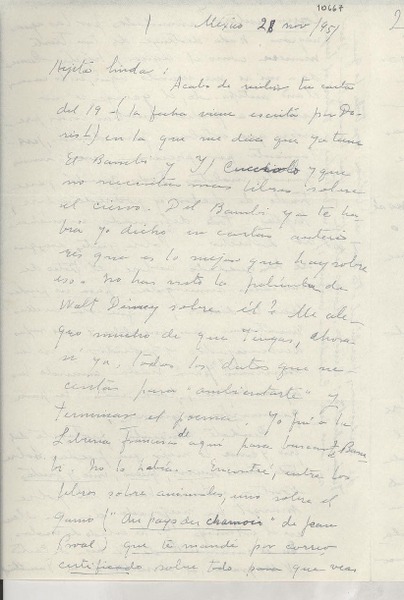 10667
1 México 28 nov/951 2
Hijita linda:
Acabo de recibir tu carta
del 19 - (la fecha viene escrita por Do-
ris) en la que me dices que ya tiene
el Bambi y Il Cucciolo y que
no necesitas mas libros sobre
el ciervo. Del Bambi ya te ha-
bía yo dicho en cartas anterio
res que es lo mejor que hay sobre
eso. No has visto la película de
Walt Disney sobre él? Me ale-
gro mucho de que tengas, ahora
ya, todos los datos que ne-
cesitas para "ambientarte" y
terminar el poema. Yo fuí a la
Librería francesa de aquí para buscar el Bam
bi. No lo había. Encontré, entre los
libros sobre animales, uno sobre el
gamo ("Au pays des chamois" de Jean
Proal) que te mandé por correo
certificado sobre todo para que veas